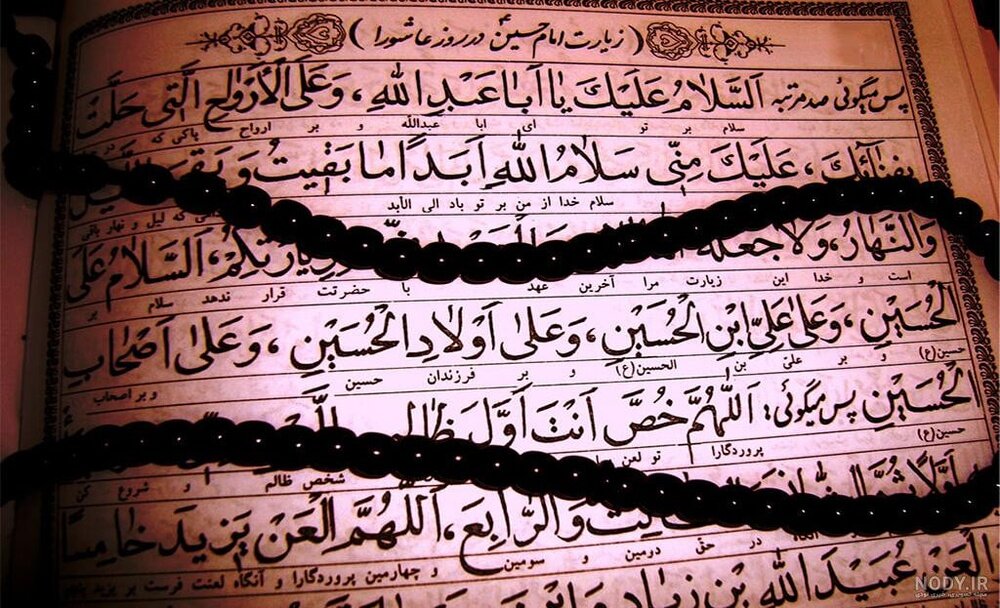 ( زیارت امام حسینؑ در روز عاشورا )
پس میگوئی صد مرتبه اَلسَّلامُ عَلَیْكَ یا اَبا عَبْدِ اللهِ ، وَ عَلَی الْاَرْواحِ الَّتی حَلَّتْ
سلام بر تو ای ابا عبدالله و بر ارواح پاکی که در
بِفِنائِكَ ، عَلَیْكَ مِنّی سَلامُ اللهِ اَبَداً ما بَقیتُ وَ بَقِیَ
سلام خدا از من بر تو باد الی الأبد که لیل و نهار باقی
وَالنَّهارُ ، وَلا جَعَلَهُ السَّلامُ عَلَی
است و خدا این زیارت مرا آخرین عهد با حضرتت قرار ندهد سلام بر
الْحُسَیْنِ ، وَ عَلی عَلِیِّ ابْنِ الْحُسَیْنِ ، وَ عَلی اَوْلادِ الْحُسَیْنِ ، وَ عَلی اَصْحابِ
حسین(ع) و بر علیّ بن الحسین(ع) و بر فرزندان حسین و بر اصحاب
الْحُسَیْنِ پس میگوئی: اَللّهُمَّ خُصَّ اَنْتَ اَوَّلَ
حسین(ع) پروردگارا تو لعن
شخص ظالم و شروع کن
وَالرّابِعَ ، اَللّهُمَّ الْعَنْ یَزیدَ خامِساً
در حقّ دومین و سومین و چهارمین پروردگارا و آنگاه لعنت فرست بر یزید پنجم
الْعَنْ عُبَیْدَ اللهِ بْنَ زِیادٍ
NODY.IR